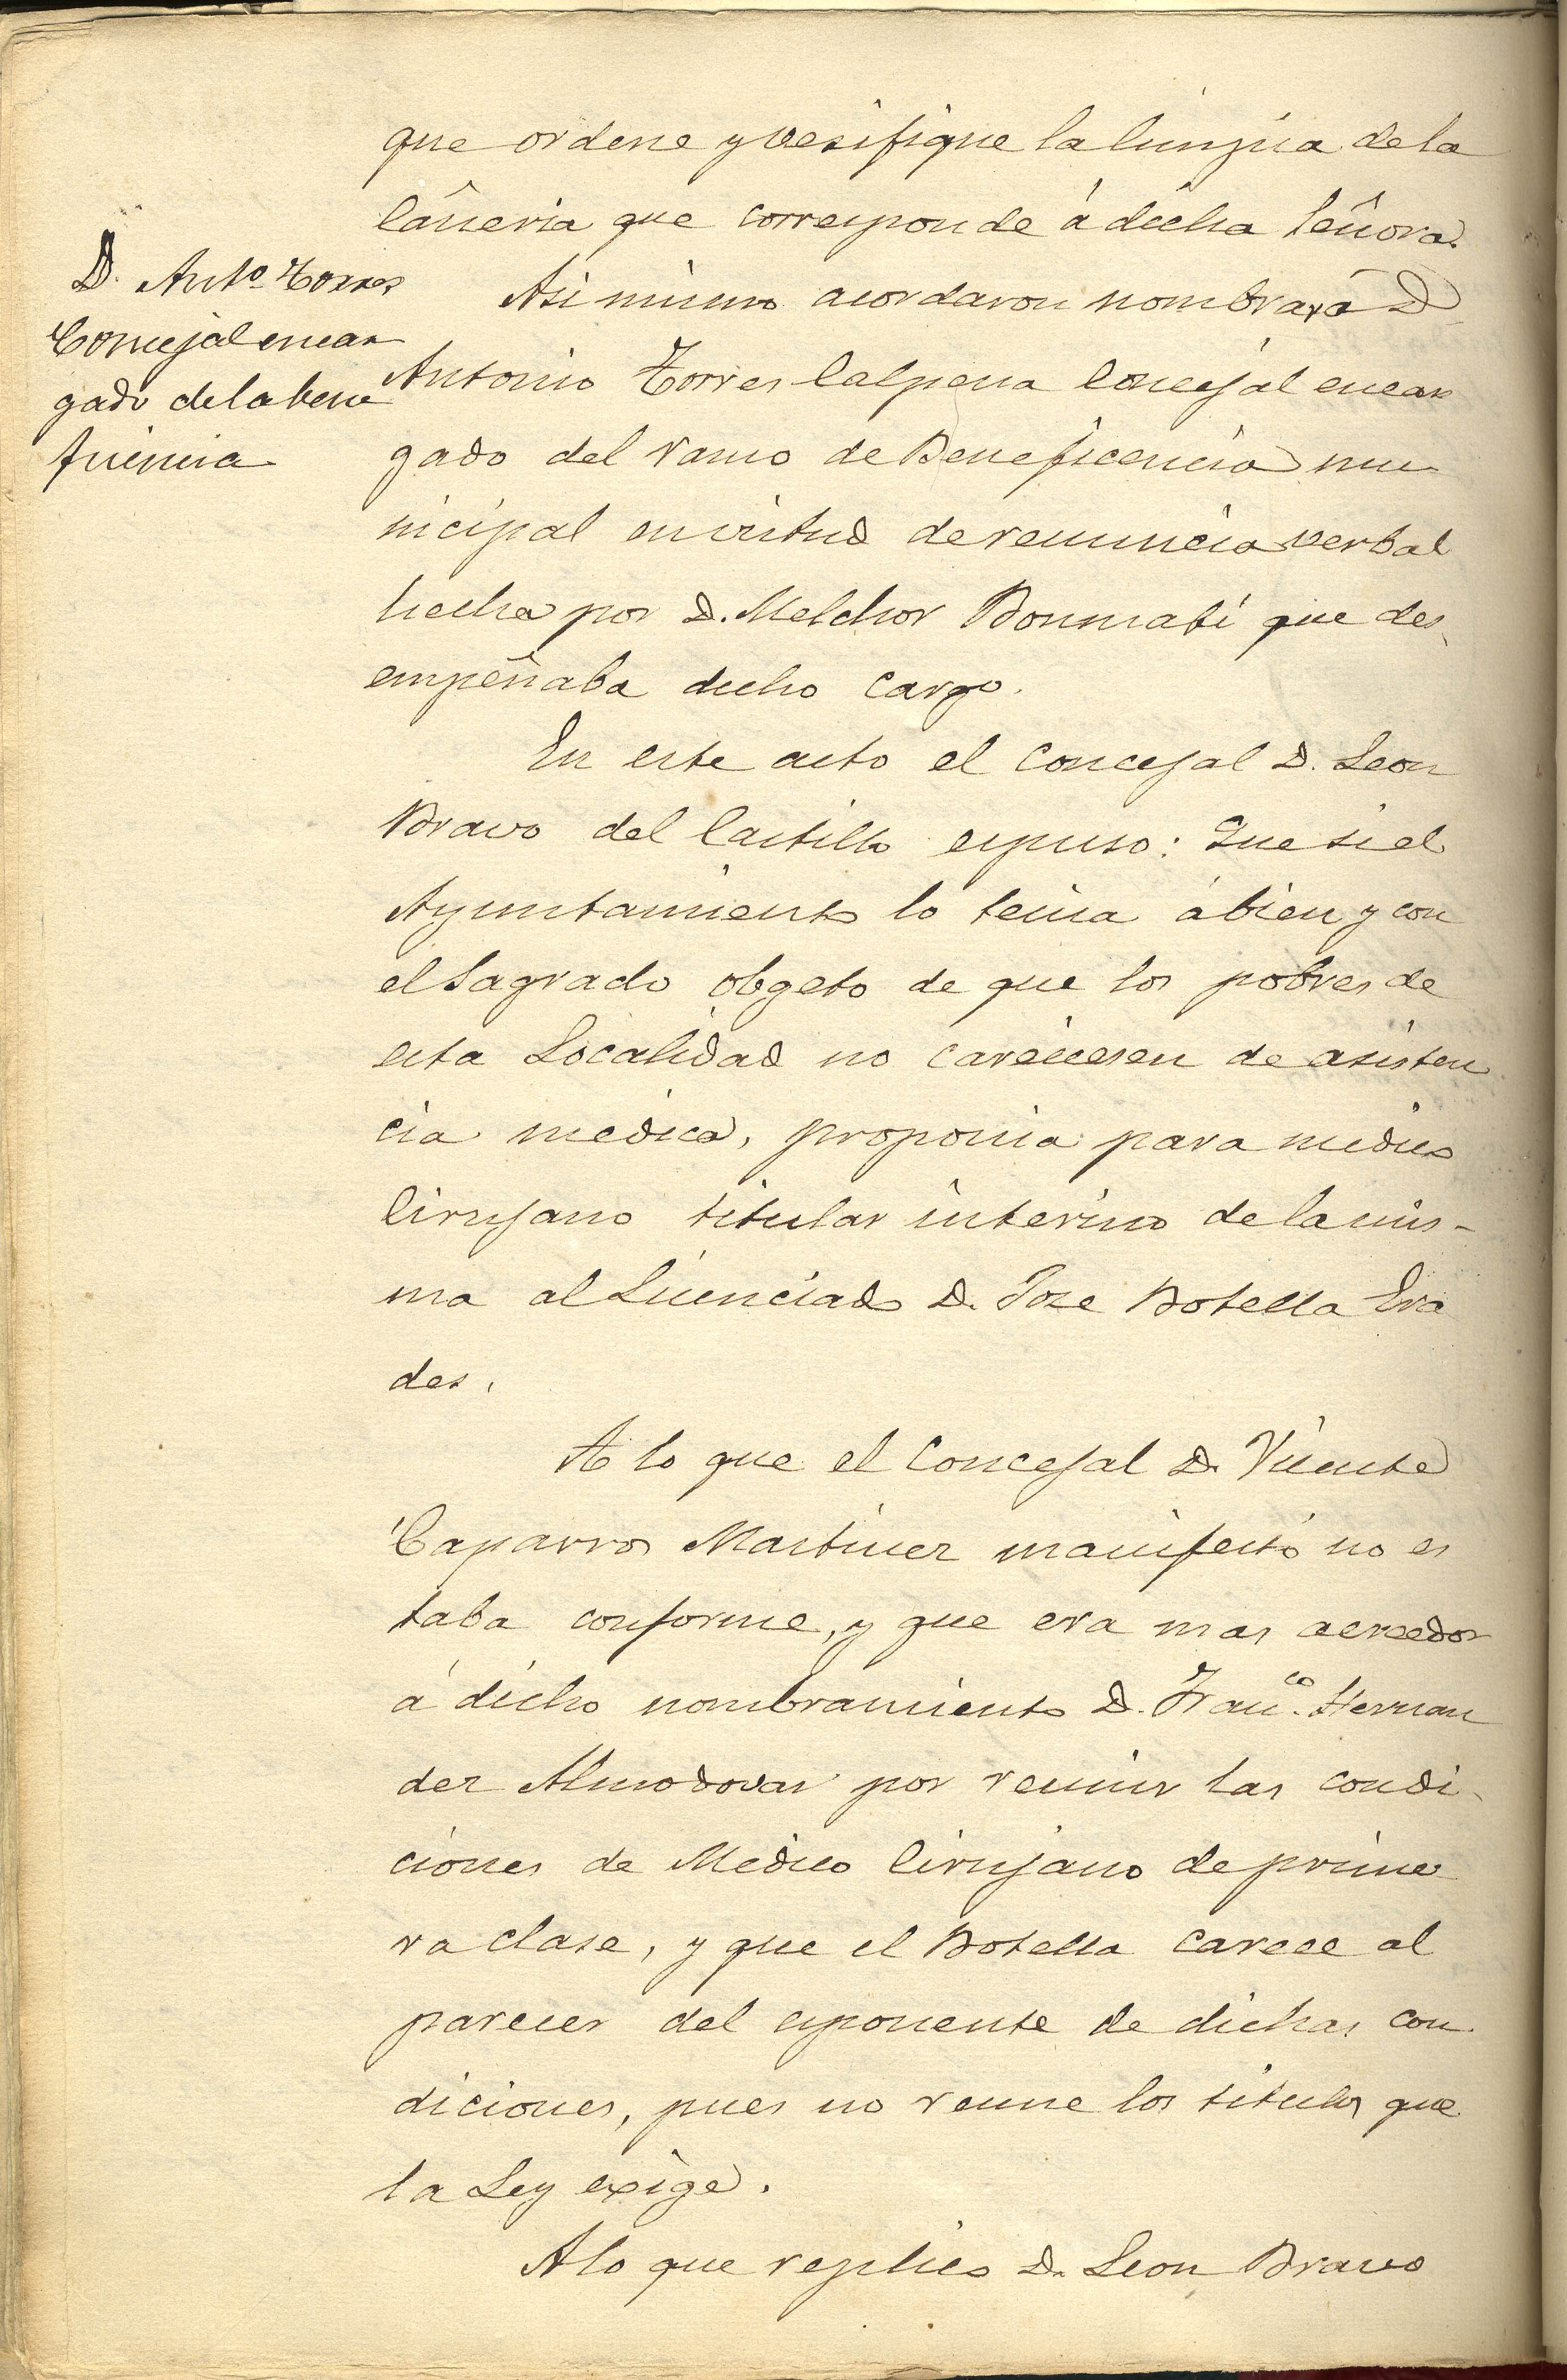 que ordene y verifique la limpia de la
cañeria que corresponde á dicha Señora.
D. Ant.º Torres
Concejal encar
gado de la bene
ficiencia
Asi mismo acordaron nombrar á D
Antonio Torres Calpena Concejal encar
gado del ramo de Beneficencia mu
nicipal en virtud de renuncia verbal
hecha por D. Melchor Bonmatí que des
empeñaba dicho cargo.
En este acto el Concejal D. Leon
Bravo del Castillo espuso: Que si el
Ayuntamiento lo tenia á bien y con
el Sagrado obgeto de que los pobres de
esta Localidad no careciesen de asisten
cia medica, proponia para medico
Cirujano titular interino de la mis-
ma al Licenciado D. Jose Botella Era
des.
A lo que el Concejal D. Vicente
Caparros Martinez manifestó no es
taba conforme, y que era mas acreedor
á dicho nombramiento D. Fran.co Hernan
dez Almodovar por reunir las condi
ciones de Médico Cirujano de prime
ra clase, y que el Botella carece al
parecer del esponente de dichas con
diciones, pues no reune los titulos que
la Ley exige.
A lo que replico D. Leon Bravo